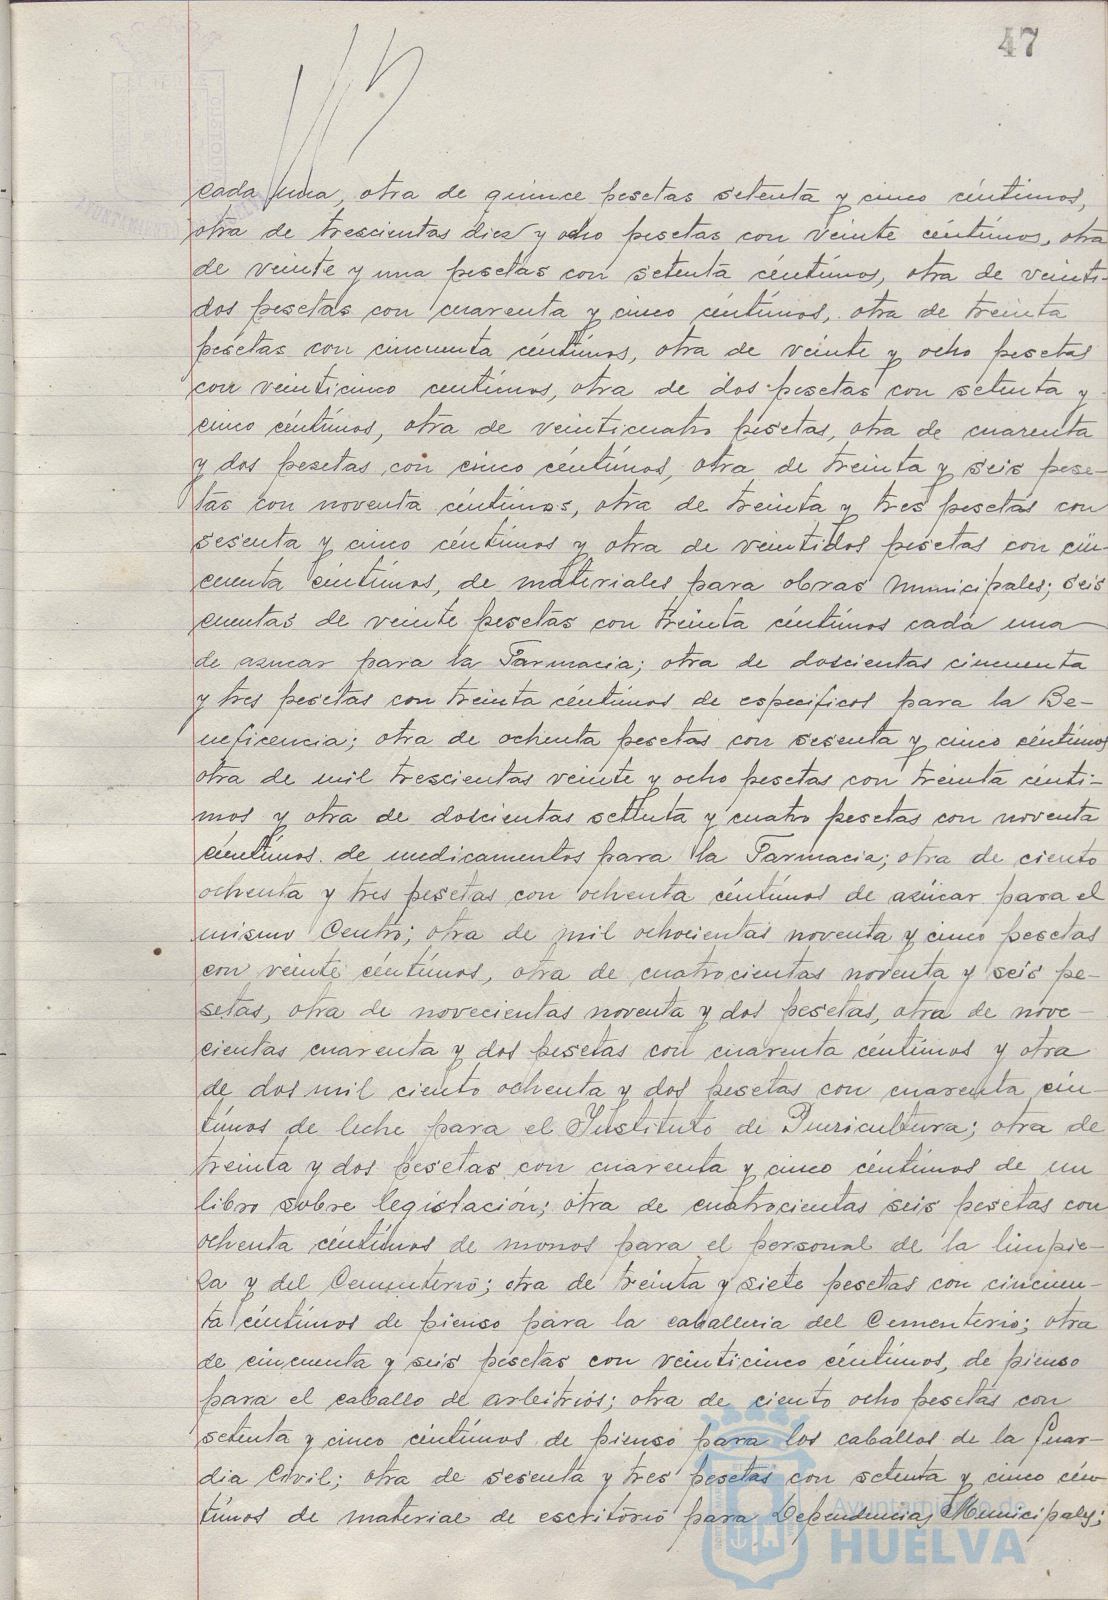 47
cada una, otra de quince pesetas setenta y cinco céntimos,
otra de trescientas diez y ocho pesetas con veinte céntimos, otra
de veinte y una pesetas con setenta céntimos, otra de veinti-
dos pesetas con cuarenta y cinco céntimos, otra de treinta
pesetas con cincuenta céntimos, otra de veinte y ocho pesetas
con veinticinco centimos, otra de dos pesetas con setenta y
cinco céntimos, otra de veinticuatro pesetas, otra de cuarenta
y dos pesetas con cinco céntimos, otra de treinta y seis pese-
tas con noventa céntimos, otra de treinta y tres pesetas con
sesenta y cinco céntimos y otra de veintidos pesetas con cin-
cuenta céntimos, de materiales para obras Municipales; seis
cuentas de veinte pesetas con treinta céntimos cada una
de azucar para la Farmacia; otra de doscientas cincuenta
y tres pesetas con treinta céntimos de especificos para la Be-
neficencia; otra de ochenta pesetas con sesenta y cinco céntimos
otra de mil trescientas veinte y ocho pesetas con treinta cénti-
mos y otra de doscientas setenta y cuatro pesetas con noventa
céntimos de medicamentos para la Farmacia; otra de ciento
ochenta y tres pesetas con ochenta céntimos de azúcar para el
mismo Centro; otra de mil ochocientas noventa y cinco pesetas
con veinte céntimos, otra de cuatrocientas noventa y seis pe-
setas, otra de novecientas noventa y dos pesetas, otra de nove-
cientas cuarenta y dos pesetas con cuarenta céntimos y otra
de dos mil ciento ochenta y dos pesetas con cuarenta cén-
timos de leche para el Instituto de Puericultura; otra de
treinta y dos pesetas con cuarenta y cinco céntimos de un
libro sobre legistación; otra de cuatrocientas seis pesetas con
ochenta céntimos de monos para el personal de la limpie-
za y del Cementerio; otra de treinta y siete pesetas con cincuen-
ta céntimos de pienso para la caballeria del Cementerio; otra
de cincuenta y seis pesetas con veinticinco céntimos, de pienso
para el caballo de arbitrios; otra de ciento ocho pesetas con
setenta y cinco céntimos de pienso para los caballos de la Guar-
dia Civil; otra de sesenta y tres pesetas con setenta y cinco cén-
timos de material de escritorio para Dependencias Municipales;
Ayuntamiento de
HUELVA